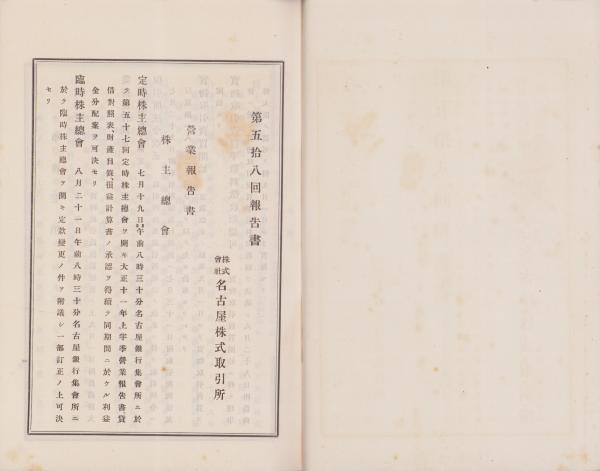 第五拾八回報告書
株式會社 名古屋株式取引所
營業報告書
株主總會
定時株主總會 七月十九日午前八時三十分名古屋銀行集會所ニ於
テ第五十七回定時株主總會ヲ開キ大正十一年上半季營業報告書貸
借對照表、財產目錄、損益計算書ノ承認ヲ得續テ同期間ニ於ケル利益
金分配案ヲ可決セリ
臨時株主總會 八月二十一日午前八時三十分名古屋銀行集會所ニ
於テ臨時株主總會ヲ開キ定款變更ノ件ヲ附議シ一部訂正ノ上可決
セリ